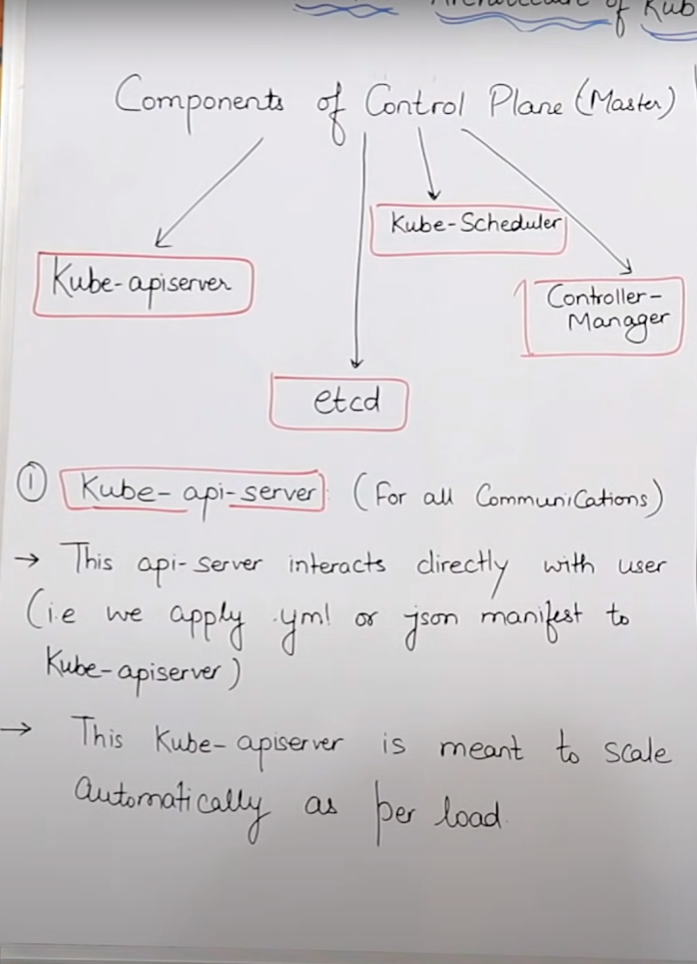 of Kub
Components of Control Plane (Master)
Kube-Scheduler
Kube-apiserver
Controller-
Manager
etcd
① Kube-api-server (For all Communications)
→ This api-server interacts directly with user
(i.e we apply .yml or json manifest to
Kube-apiserver)
→ This Kube-apiserver is meant to scale
automatically as per load.